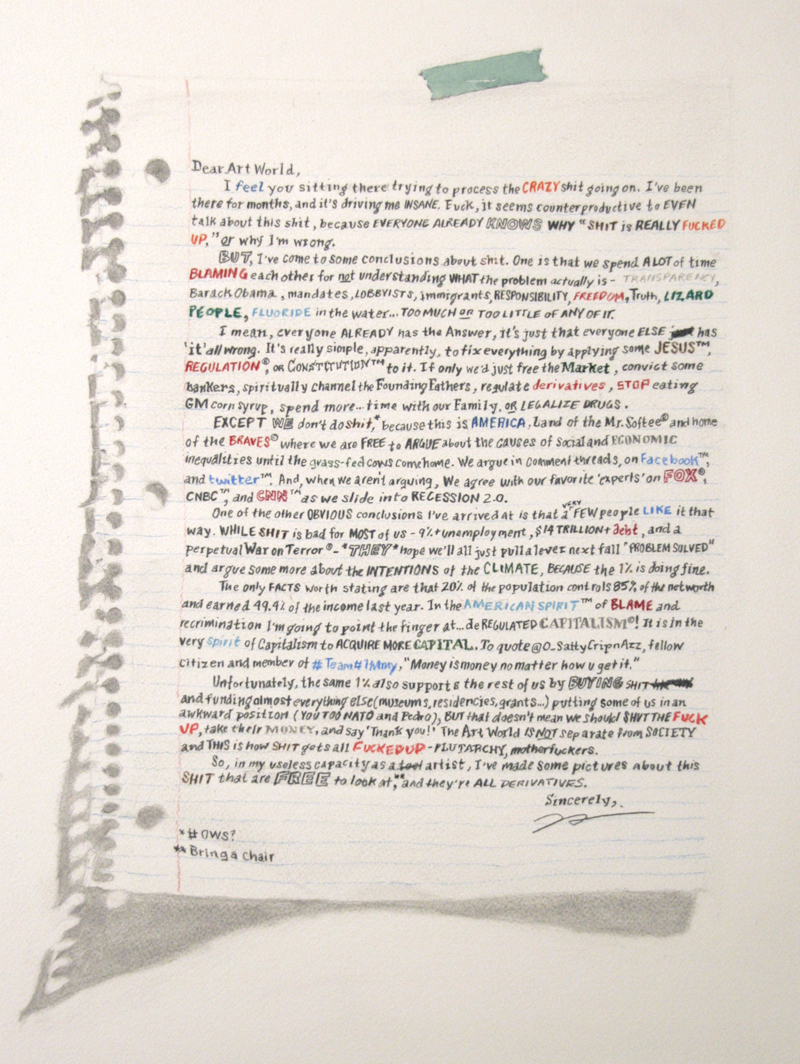 Dear Art World,
I feel you sitting there trying to process the CRAZY shit going on. I've been
there for months, and it's driving me INSANE. Fuck, it seems counterproductive to EVEN
talk about this shit, because EVERYONE ALREADY KNOWS WHY "SHIT is REALLY FUCKED
UP," or why I'm wrong.
BUT, I've come to some conclusions about shit. One is that we spend A LOT of time
BLAMING each other for not understanding WHAT the problem actually is - TRANSPARENCY,
Barack Obama, mandates, LOBBYISTS, immigrants, RESPONSIBILITY, FREEDOM, Truth, LIZARD
PEOPLE, FLUORIDE in the water... TOO MUCH or TOO LITTLE OF ANY OF IT.
I mean, everyone ALREADY has the Answer, it's just that everyone ELSE has
'it' all wrong. It's really simple, apparently, to fix everything by applying some JESUS™,
REGULATION®, OR CONSTITUTION™ to it. If only we'd just free the Market, convict some
bankers, spiritually channel the Founding Fathers, regulate derivatives, STOP eating
GM corn syrup, spend more... time with our Family, OR LEGALIZE DRUGS.
EXCEPT WE don't do shit,* because this is AMERICA, Land of the Mr. Softee® and home
of the BRAVES® where we are FREE to ARGUE about the CAUSES of Social and ECONOMIC
inequalities until the grass-fed cows come home. We argue in comment threads, on Facebook™,
and twitter™. And, when we aren't arguing, We agree with our favorite 'experts' on FOX®,
CNBC™, and CNN™ as we slide into RECESSION 2.0.
One of the other OBVIOUS conclusions I've arrived at is that a VERY FEW people LIKE it that
way. WHILE SHIT is bad for MOST of us - 9%+ unemployment, $14 TRILLION+ debt, and a
perpetual War on Terror® - *THEY* hope we'll all just pull a lever next fall "PROBLEM SOLVED"
and argue some more about the INTENTIONS of the CLIMATE, BECAUSE the 1% is doing fine.
The only FACTS worth stating are that 20% of the population controls 85% of the networth
and earned 49.4% of the income last year. In the AMERICAN SPIRIT™ of BLAME and
recrimination I'm going to point the finger at... deREGULATED CAPITALISM®! It is in the
very spirit of Capitalism to ACQUIRE MORE CAPITAL. To quote @O_SattyCripnAzz, fellow
citizen and member of #Team#1Mmy, "Money is money no matter how u get it."
Unfortunately, the same 1% also supports the rest of us by BUYING SHIT
and funding almost everything else (museums, residencies, grants...) putting some of us in an
awkward position (YOU TOO NATO and Pedro), BUT that doesn't mean we should SHUT THE FUCK
UP, take their MONEY, and say 'Thank you!' The Art World IS NOT separate from SOCIETY
and THIS is how SHIT gets all FUCKED UP - PLUTARCHY, motherfuckers.
So, in my useless capacity as a tool artist, I've made some pictures about this
SHIT that are FREE to look at,** and they're ALL DERIVATIVES.
Sincerely,
*#OWS?
**Bring a chair